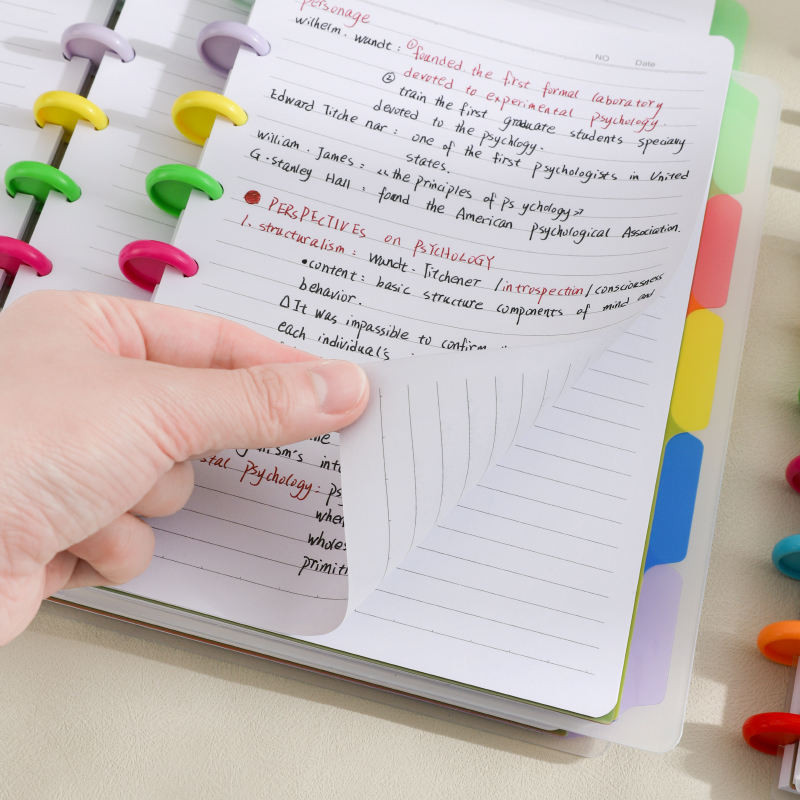 personage
NO Date
wilhelm. wandt: ① founded the first formal laboratory
devoted to experimental psychology.
② train the first graduate students specially
devoted to the psychlogy.
Edward Titche nar: one of the first psychologists in United
states.
William. James: "the principles of ps ychology»
G. stanley Hall: found the American psychological Association.
PERSPECTIVES on PSYCHOLOGY
1. structuralism: Wandt. Titchener /introspection/consciousness
•content: basic structure components of mind and
behavior.
Δ It was impassible to confirm
each individual's
psychology:
whole